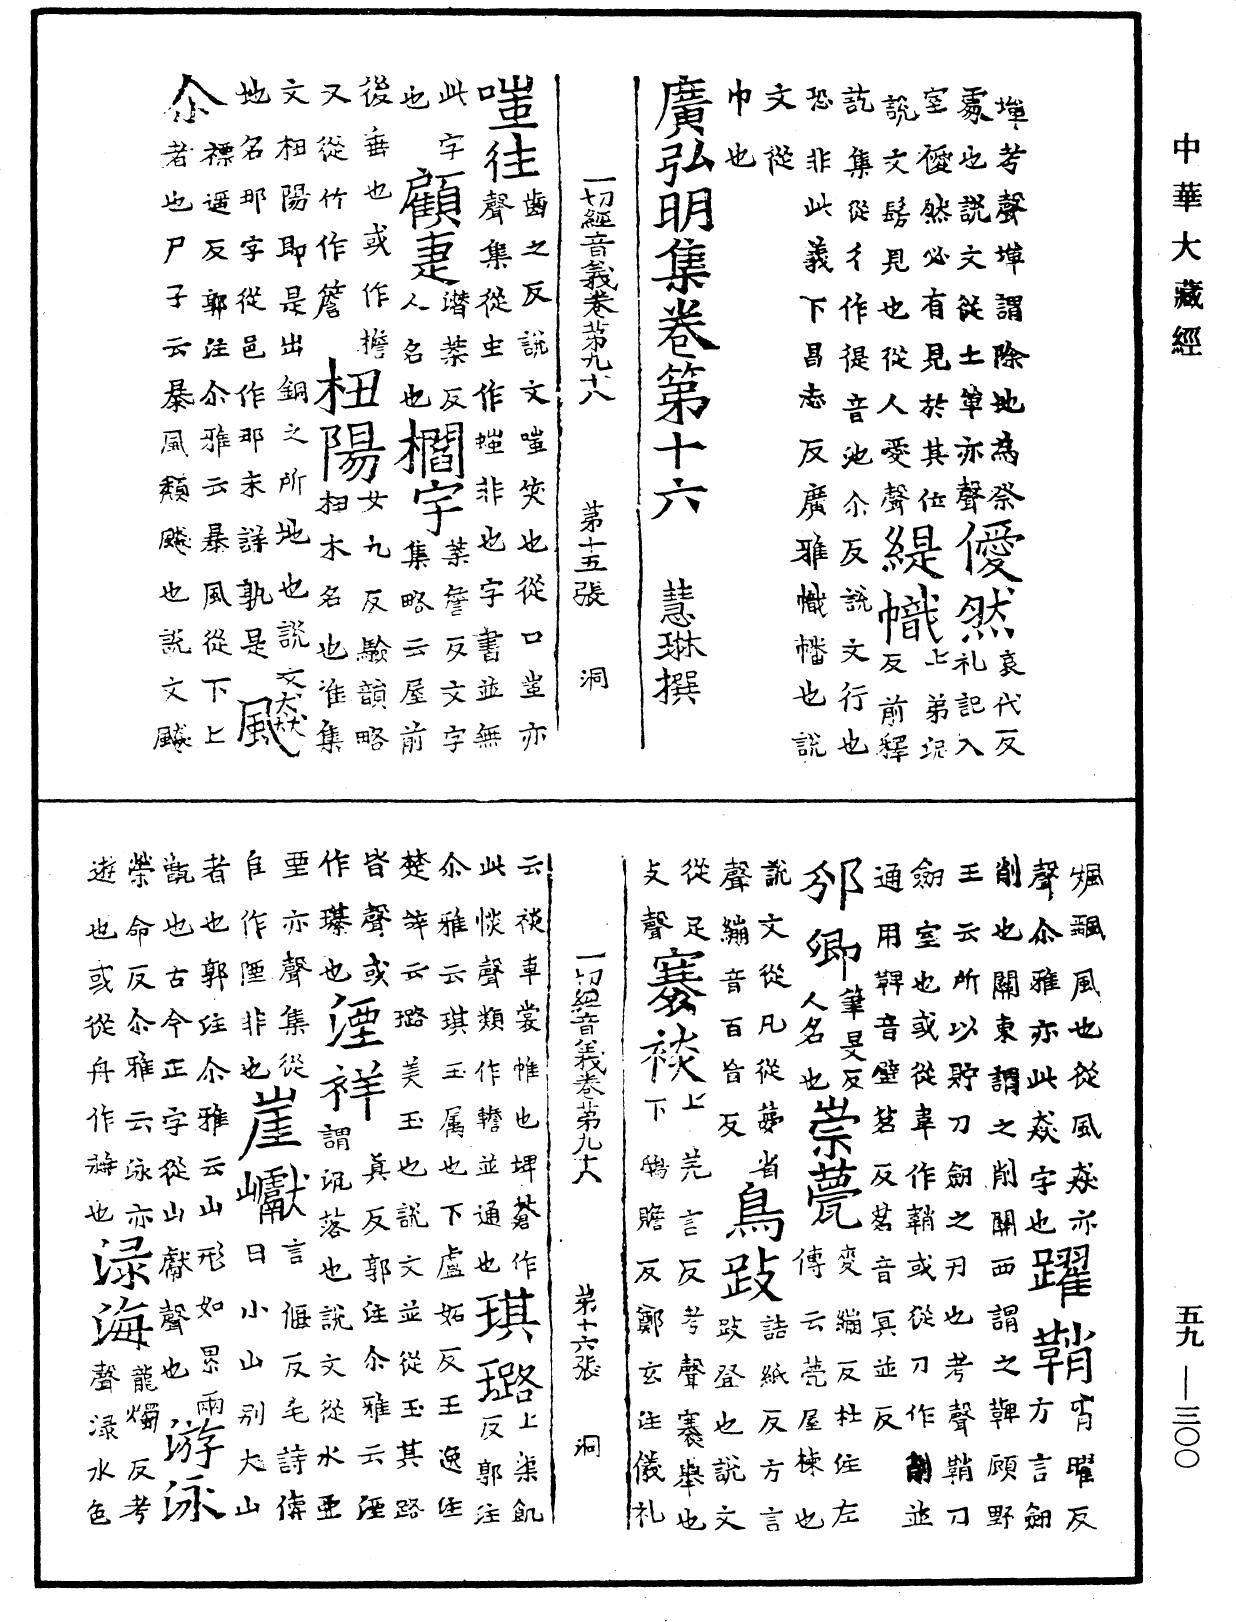 中華大藏經
五九—三〇〇
墠考聲墠謂除地為祭
處也說文從土單亦聲
僾然
哀代反
禮記入
室僾然必有見於其位
說文髣見也從人愛聲
緹幟
上弟泥
反前釋
訖集從彳作徥音池尒反說文行也
恐非此義下昌志反廣雅幟幡也說
文從
巾也
廣弘明集卷第十六 慧琳撰
一切經音義卷第九十八 第十五張 洞
嗤往
齒之反說文嗤笑也從口蚩亦
聲集從虫作蚩非也字書並無
此字
也
顧㚲
潛葉反
人名也
櫩宇
葉詹反文字
集略云屋前
後垂也或作檐
又從竹作簷
杻陽
女九反驗韻略
杻木名也準集
文杻陽即是出銅之所地也說文
地名那字從邑作那未詳孰是
飈
尒
褾遥反郭注尒雅云暴風從下上
者也尸子云暴風頹飈也說文飈
飆颻風也從風猋亦
聲尒雅亦此猋字也
躍鞘
宵曜反
方言劒
削也關東謂之削關西謂之鞞顧野
王云所以貯刀劒之刃也考聲鞘刀
劒室也或從韋作鞘或從刀作削並
通用鞞音壁茗反茗音冥並反
邠卿
筆旻反
人名也
崇甍
變繃反杜注左
傳云甍屋棟也
說文從凡從夢省
聲繃音百盲反
鳥跂
詰紙反方言
跂登也說文
從足
支聲
褰裧
上羌言反考聲褰舉也
下鴟贍反鄭玄注儀礼
云裧車裳帷也埤蒼作
此惔聲類作襜並通也
琪璐
上渠飢
反郭注
尒雅云琪玉属也下盧妬反王逸注
楚辞云璐美玉也說文並從玉其路
皆聲或
作璂也
湮祥
真反郭注尒雅云湮
謂沉落也說文從水垔
垔亦聲集從
自作陻非也
崖巘
言偃反毛詩傳
曰小山别大山
者也郭注尒雅云山形如累兩
甑也古今正字從山獻聲也
游泳
榮命反尒雅云泳亦
遊也或從舟作㴨也
渌海
龍燭反考
聲渌水色